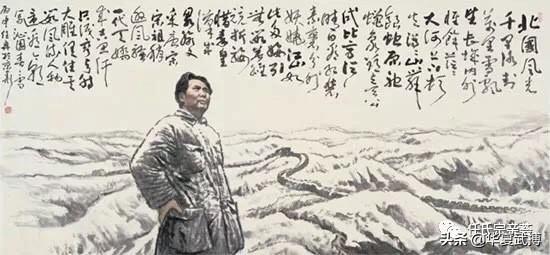 北國風光
千里冰封
萬里雪飄
望長城内外
惟餘莽莽
大河上下頓
失滔滔山舞
銀蛇原馳
蠟象欲與天公
比高須
晴日看紅裝
素裹分外
妖嬈江山如
此多嬌引
無數英雄
競折腰
惜秦皇
漢武
略輸文
采唐宗
宋祖稍
遜風騷
一代天驕
成吉思汗
只識彎弓射
大雕俱往矣
數風流人物
還看今朝
沁園春雪
头条 @华夏武搏